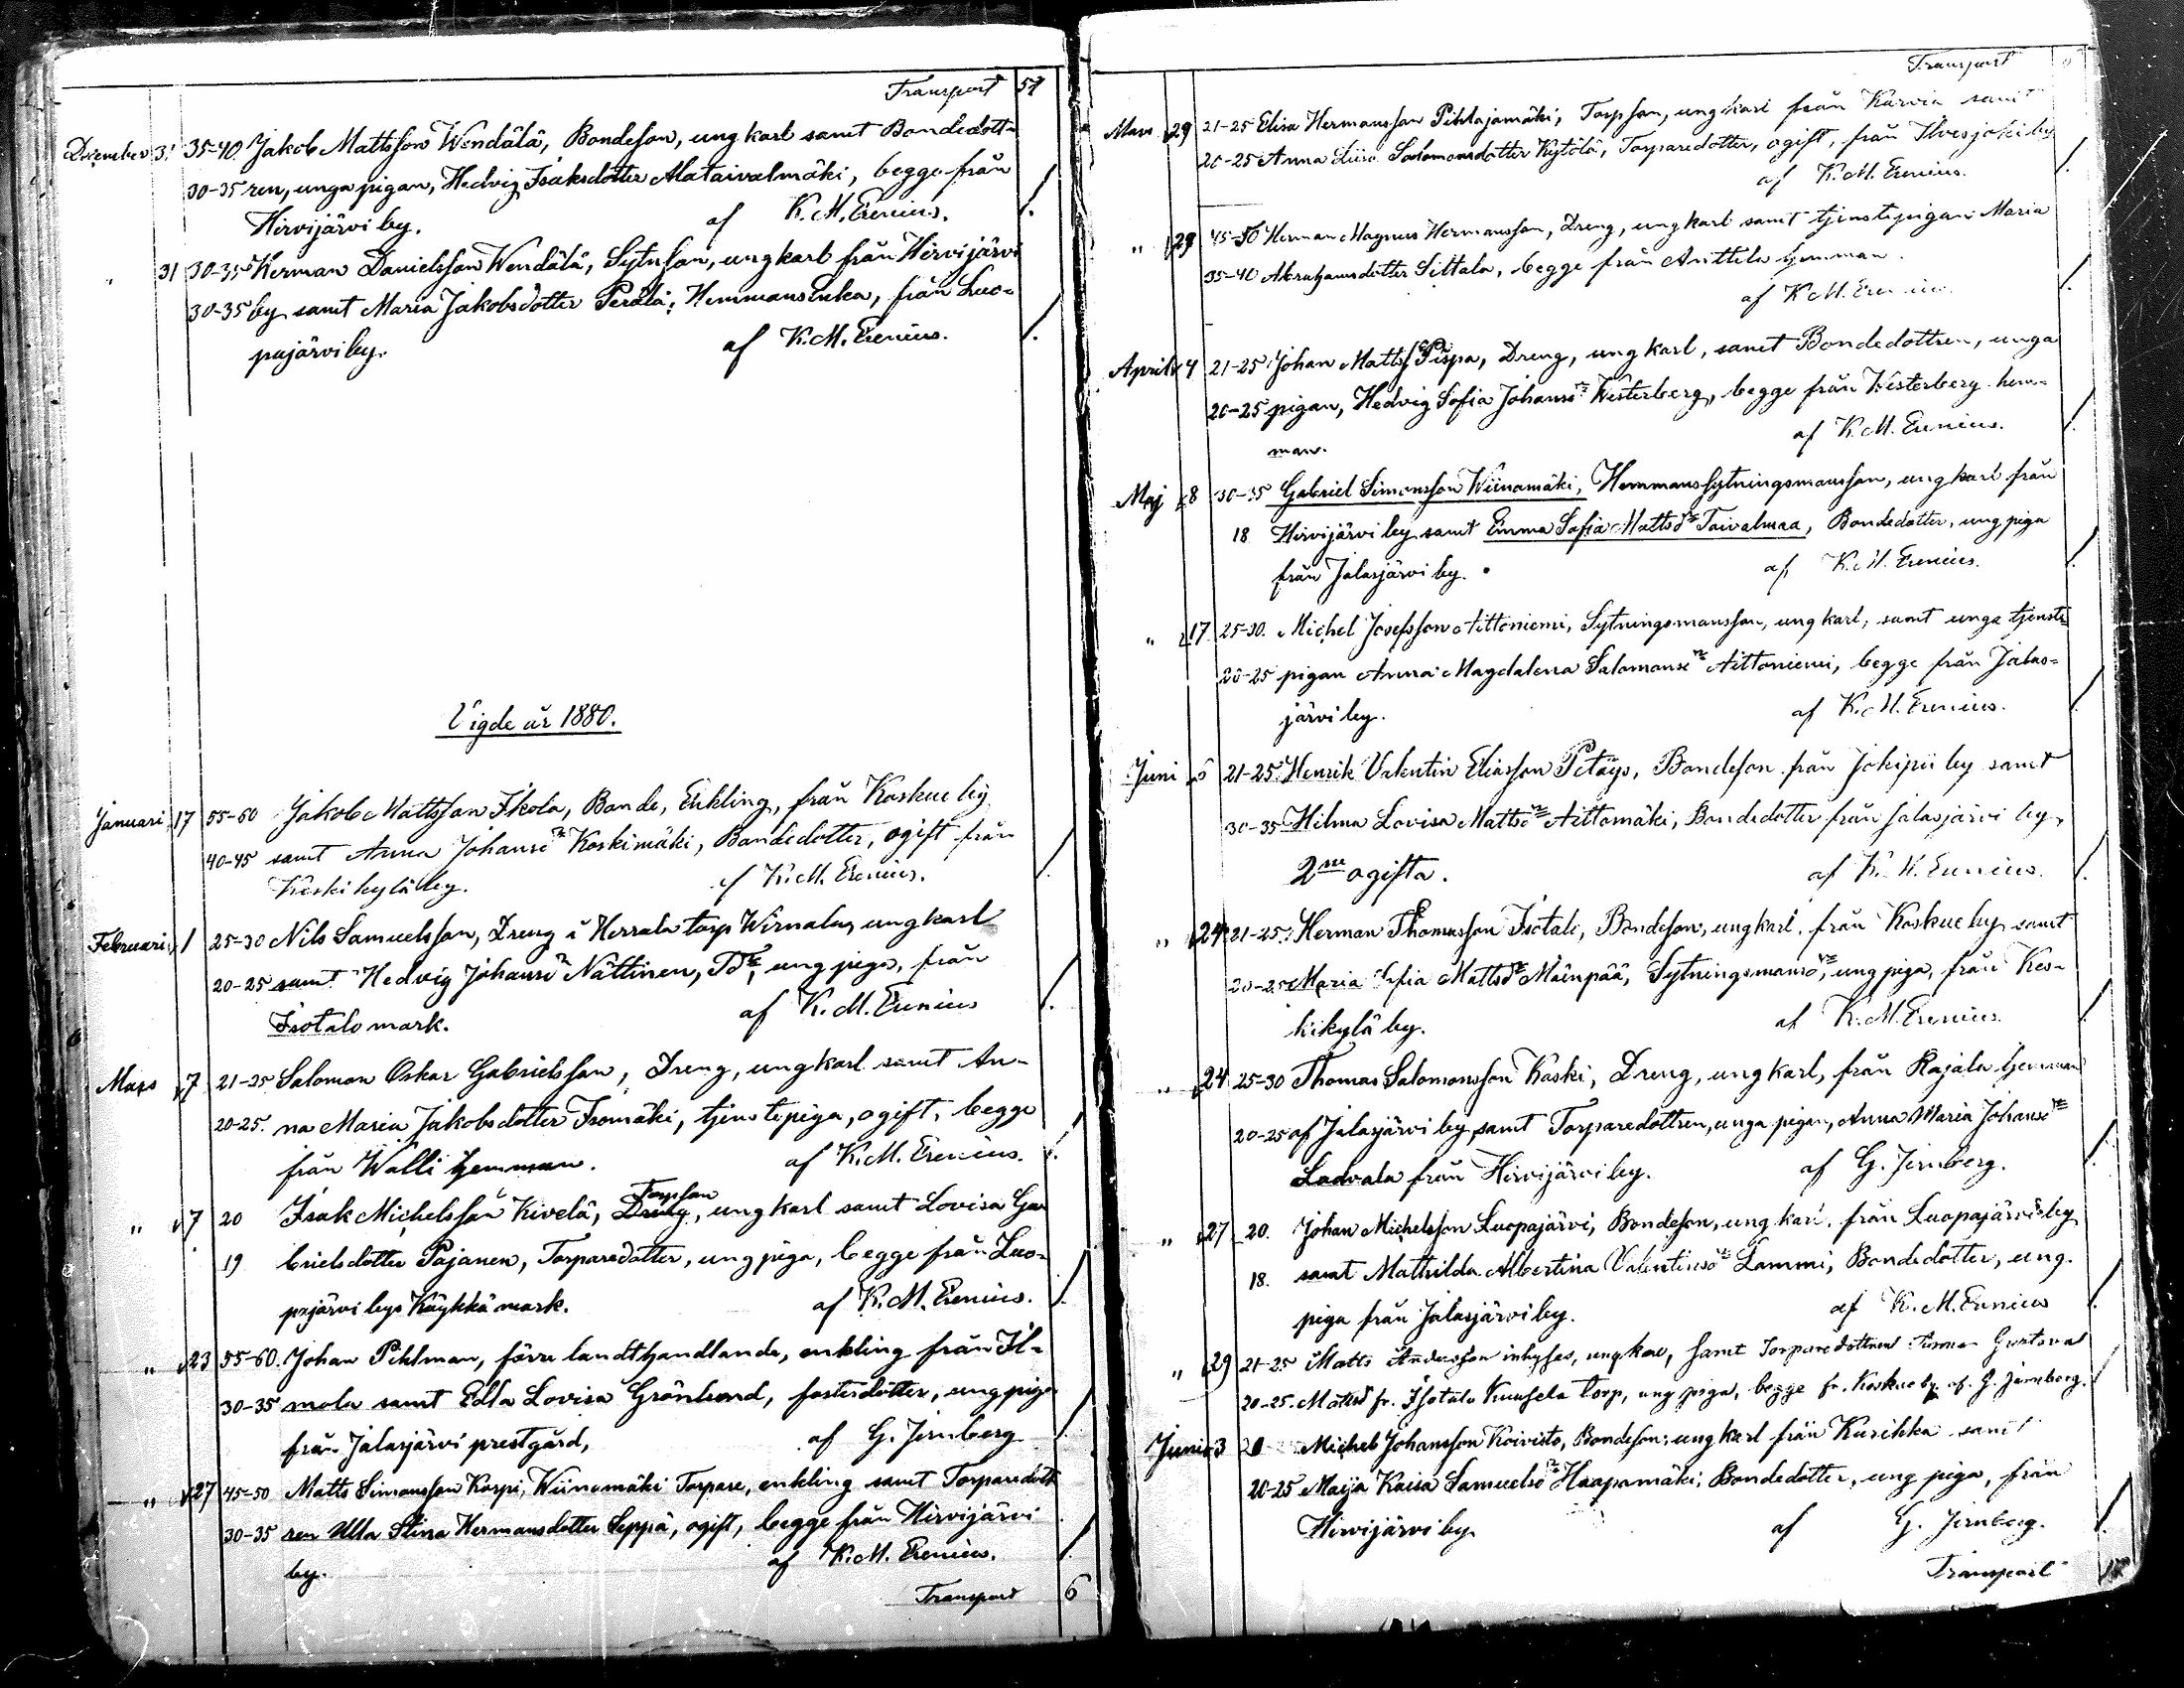 Transport 51
December 31 35-40 Jakob Mattsson Wendälä, Bondeson, ungkarl samt Bondedott-
30-35 ren, unga pigan, Hedvig Isaksdotter Alataivalmäki, begge från
Hirvijärvi by. af K. M. Erenius. 1.
" 31 30-35 Herman Danielsson Wendälä, Sytnson, ungkarl från Hirvijärvi
30-35 by samt Maria Jakobsdotter Perälä, Hemmansenka, från Luo-
pajärvi by. af K. M. Erenius. 1.
Vigde år 1880.
Januari 17 55-60 Jakob Mattsson Ikola, Bonde, Enkling, från Koskue by
40-45 samt Anna Johansd:r Koskimäki, Bondedotter, ogift från
Keskikylä by. af K. M. Erenius. 1.
Februari 1 25-30 Nils Samuelsson, Dreng å Herrala torp Wirnala, ungkarl
20-25 samt Hedvig Johansd:r Nättinen, Td:r, ung piga, från
Isotalo mark. af K. M. Erenius 1.
Mars 7 21-25 Salomon Oskar Gabrielsson, Dreng, ungkarl samt An-
20-25. na Maria Jakobsdotter Isomäki, tjenstepiga, ogift, begge
från Walli hemman. af K. M. Erenius. 1.
" 7 20 Isak Michelsson Kivelä, Dreng Torpson, ungkarl samt Lovisa Ga-
19 brielsdotter Pajanen, Torparedotter, ung piga, begge från Luo-
pajärvi bys Käykkä mark. af K. M. Erenius. 1.
" 23 55-60. Johan Pihlman, förre landthandlande, enkling från Il-
30-35 mola samt Edla Lovisa Grönlund, fosterdotter, ung piga
från Jalasjärvi prestgård, af G. Jernberg 1.
" 27 45-50 Matts Simonsson Korpi, Wiinamäki Torpare, enkling samt Torparedott-
30-35 ren Ulla Stina Hermansdotter Seppä, ogift, begge från Hirvijärvi
by. af K. M. Erenius. 1.
Transport 6
Transport
Mars 29 21-25 Elisa Hermansson Pihlajamäki, Torpson, ungkarl från Karvia samt
20-25 Anna Liisa Salomonsdotter Kytölä, Torparedotter, ogift, från Ilvesjoki by
af K. M. Erenius. 1.
" 29 45-50 Herman Magnus Hermansson, Dreng, ungkarl samt tjenstepigan Maria
35-40 Abrahamsdotter Sittala, begge från Anttila hemman.
af K. M. Erenius 1.
April 4 21-25 Johan Matts: Piispa, Dreng, ungkarl, samt Bondedottren, unga
20-25 pigan, Hedvig Sofia Johansd:r Westerberg, begge från Westerberg hem-
man. af K. M. Erenius. 1.
Maj 8 30-35 Gabriel Simonsson Wiinamäki, Hemmanssytningsmansson, ungkarl från
18 Hirvijärvi by samt Emma Sofia Mattsd:r Taivalmaa, Bondedotter, ung piga
från Jalasjärvi by. af K. M. Erenius. 1.
" 17. 25-30. Michel Josefsson Aittoniemi, Sytningsmansson, ungkarl, samt unga tjenste-
20-25 pigan Anna Magdalena Salomonsd:r Aittoniemi, begge från Jalas-
järvi by. af K. M. Erenius. 1.
Juni 6 21-25 Henrik Valentin Eliasson Petäys, Bondeson från Jokipii by samt
30-35 Hilma Lovisa Mattsd:r Aittomäki, Bondedotter från Jalasjärvi by,
2ne ogifta. af K. M. Erenius. 1.
" 24 21-25. Herman Thomasson Isotalo, Bondeson, ungkarl, från Koskue by samt
20-25 Maria Sofia Mattsd:r Mäenpää, Sytningsmansd:r, ung piga, från Kes-
kikylä by. af K. M. Erenius. 1.
" 24 25-30 Thomas Salomonsson Koski, Dreng, ungkarl, från Rajala hemman
20-25 af Jalasjärvi by samt Torparedottren, unga pigan, Anna Maria Johansd:r
Ladvala från Hirvijärvi by. af G. Jernberg. 1.
" 27 20. Johan Michelsson Luopajärvi, Bondeson, ungkarl, från Luopajärvi by
18. samt Mathilda Albertina Valentinsd:r Lammi, Bondedotter, ung
piga från Jalasjärvi by. af K. M. Erenius 1.
" 29 21-25 Matts Andersson inhyses, ungkarl, samt Torparedottren Gustava
20-25. Mattsd fr. Isotalo Kuusela torp, ung piga, begge fr. Koskue by. af. G. Jernberg.
Juni 3 20 Michel Johansson Koivisto, Bondeson, ungkarl från Kurikka samt
20-25 Maija Kaisa Samuelsd:r Haapamäki, Bondedotter, ung piga, från
Hirvijärvi by. af G. Jernberg. 1.
Transport